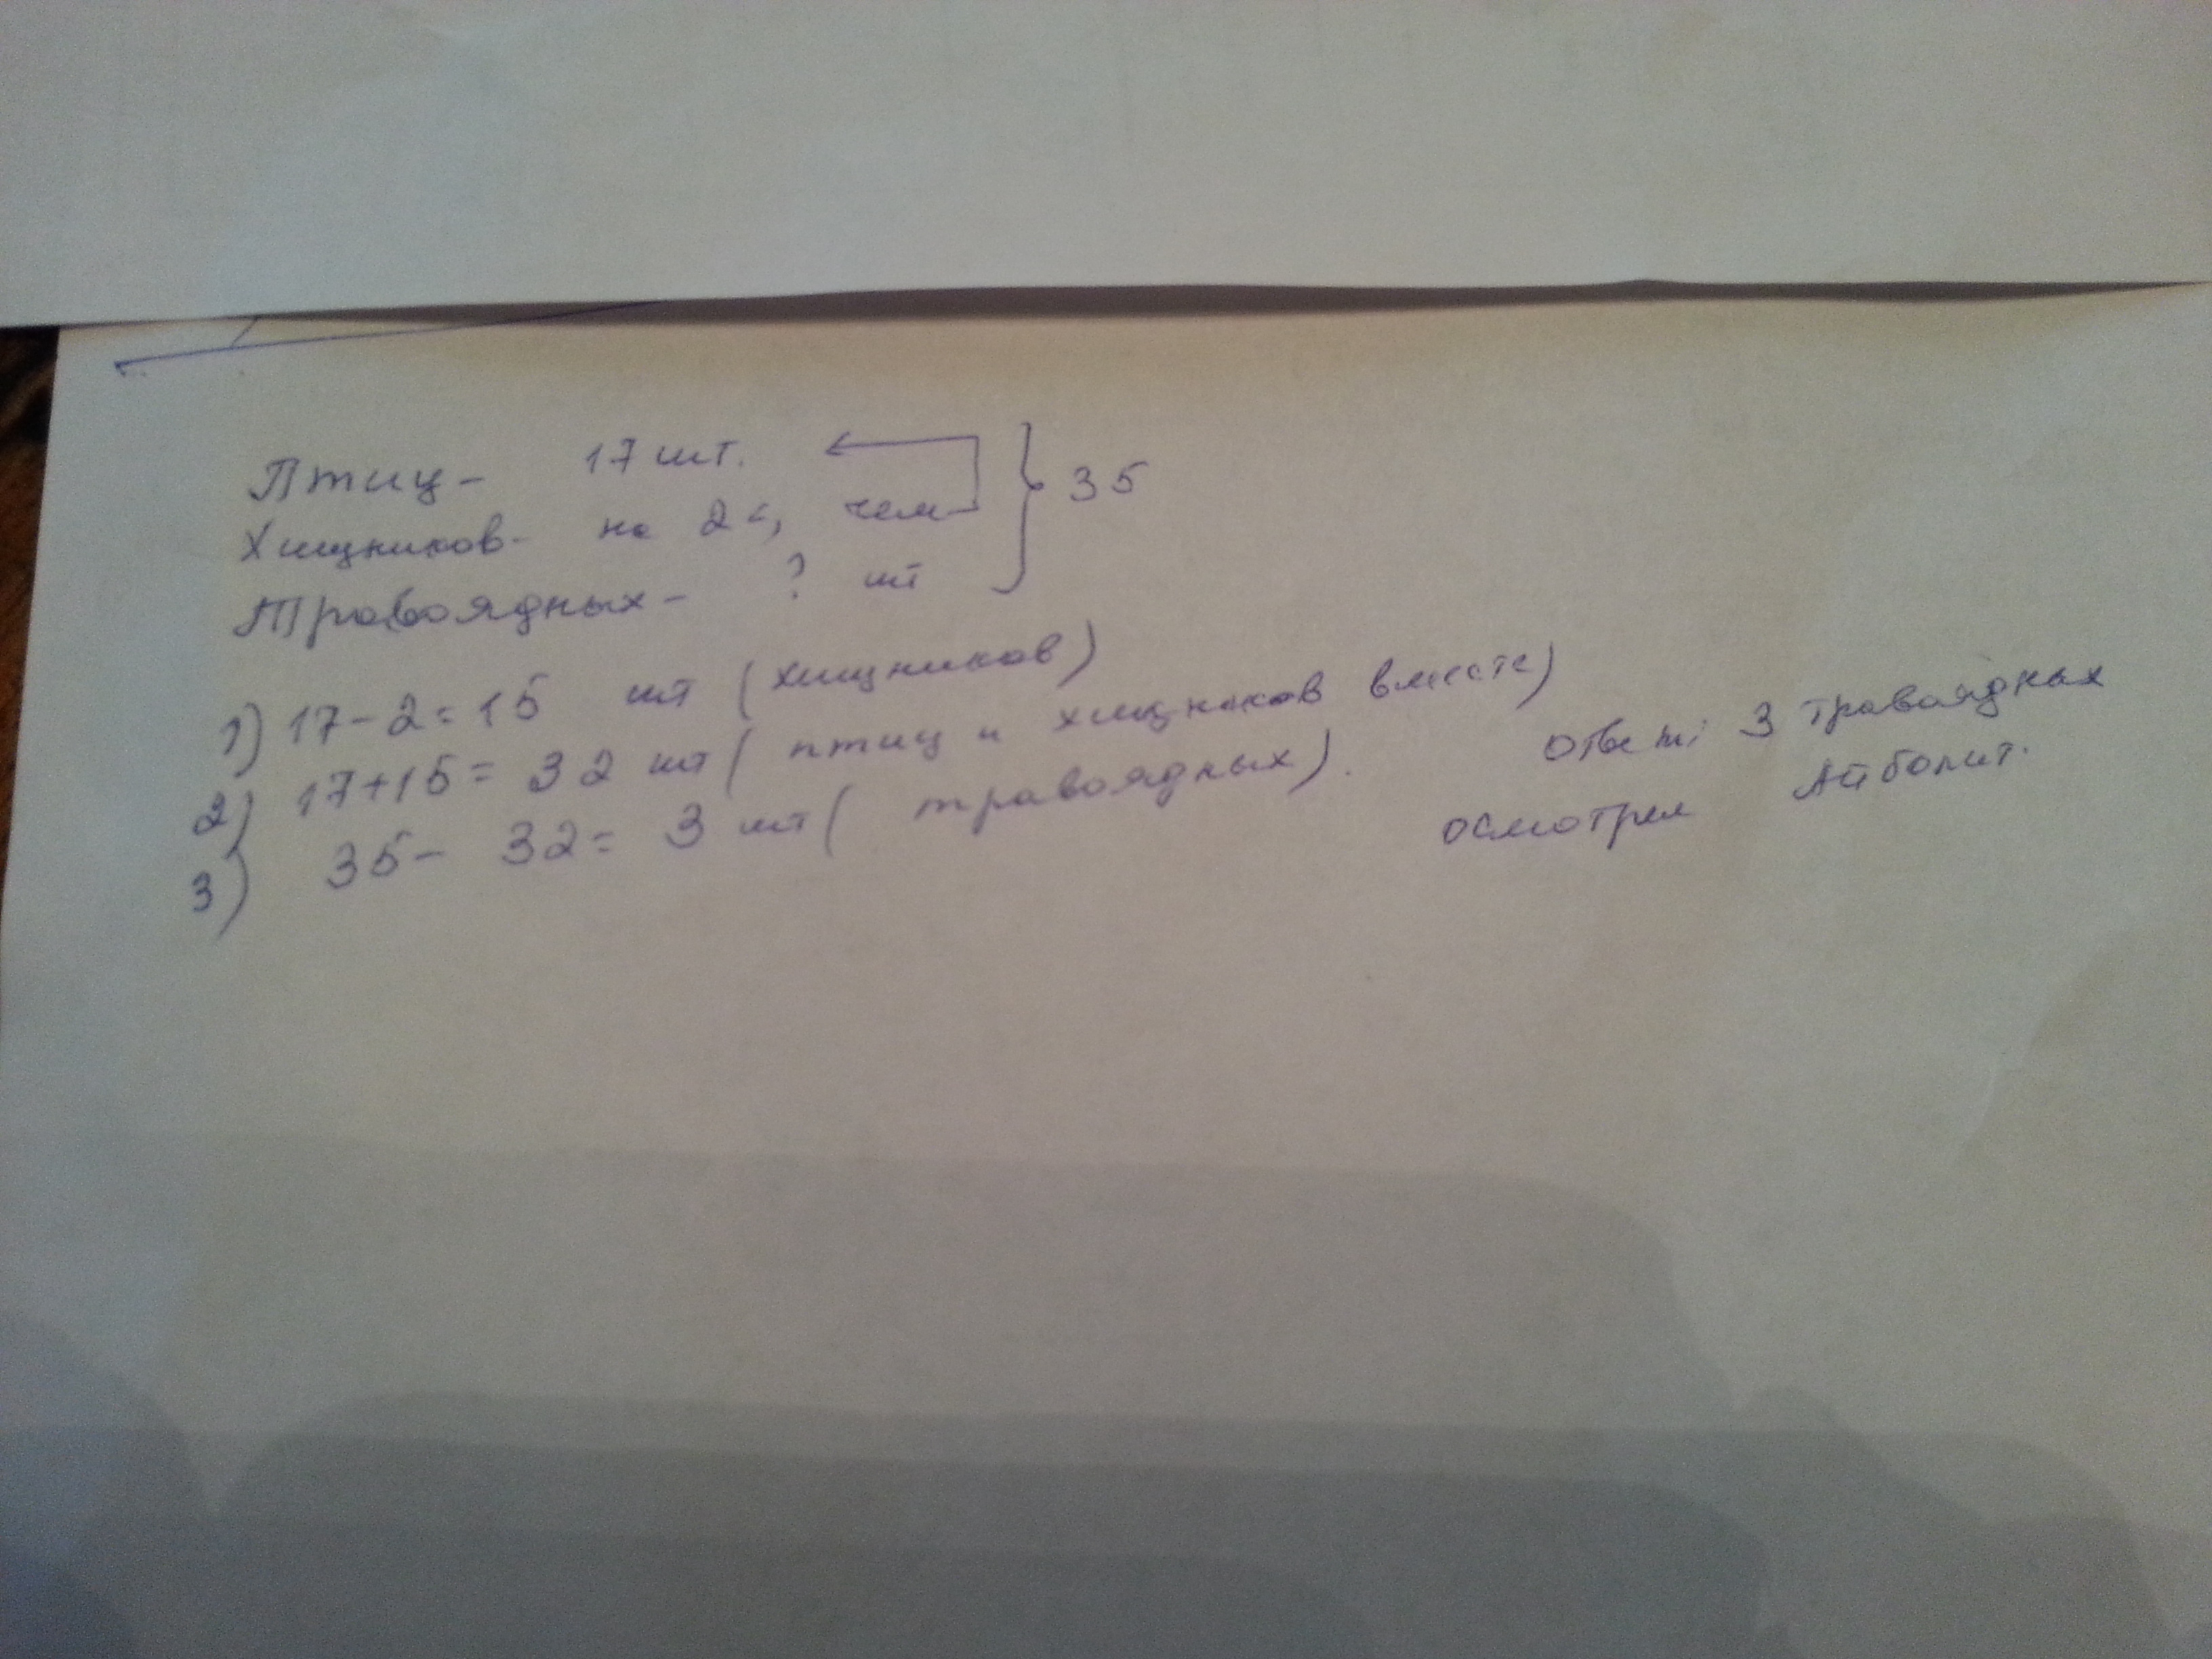 Птиц- 17 шт.
Хищников- на 2<, чем
} 35
Травоядных- ? шт
1) 17-2=15 шт (хищников)
2) 17+15= 32 шт (птиц и хищников вместе)
3) 35- 32= 3 шт (травоядных).
Ответ: 3 травоядных
осмотрел Айболит.